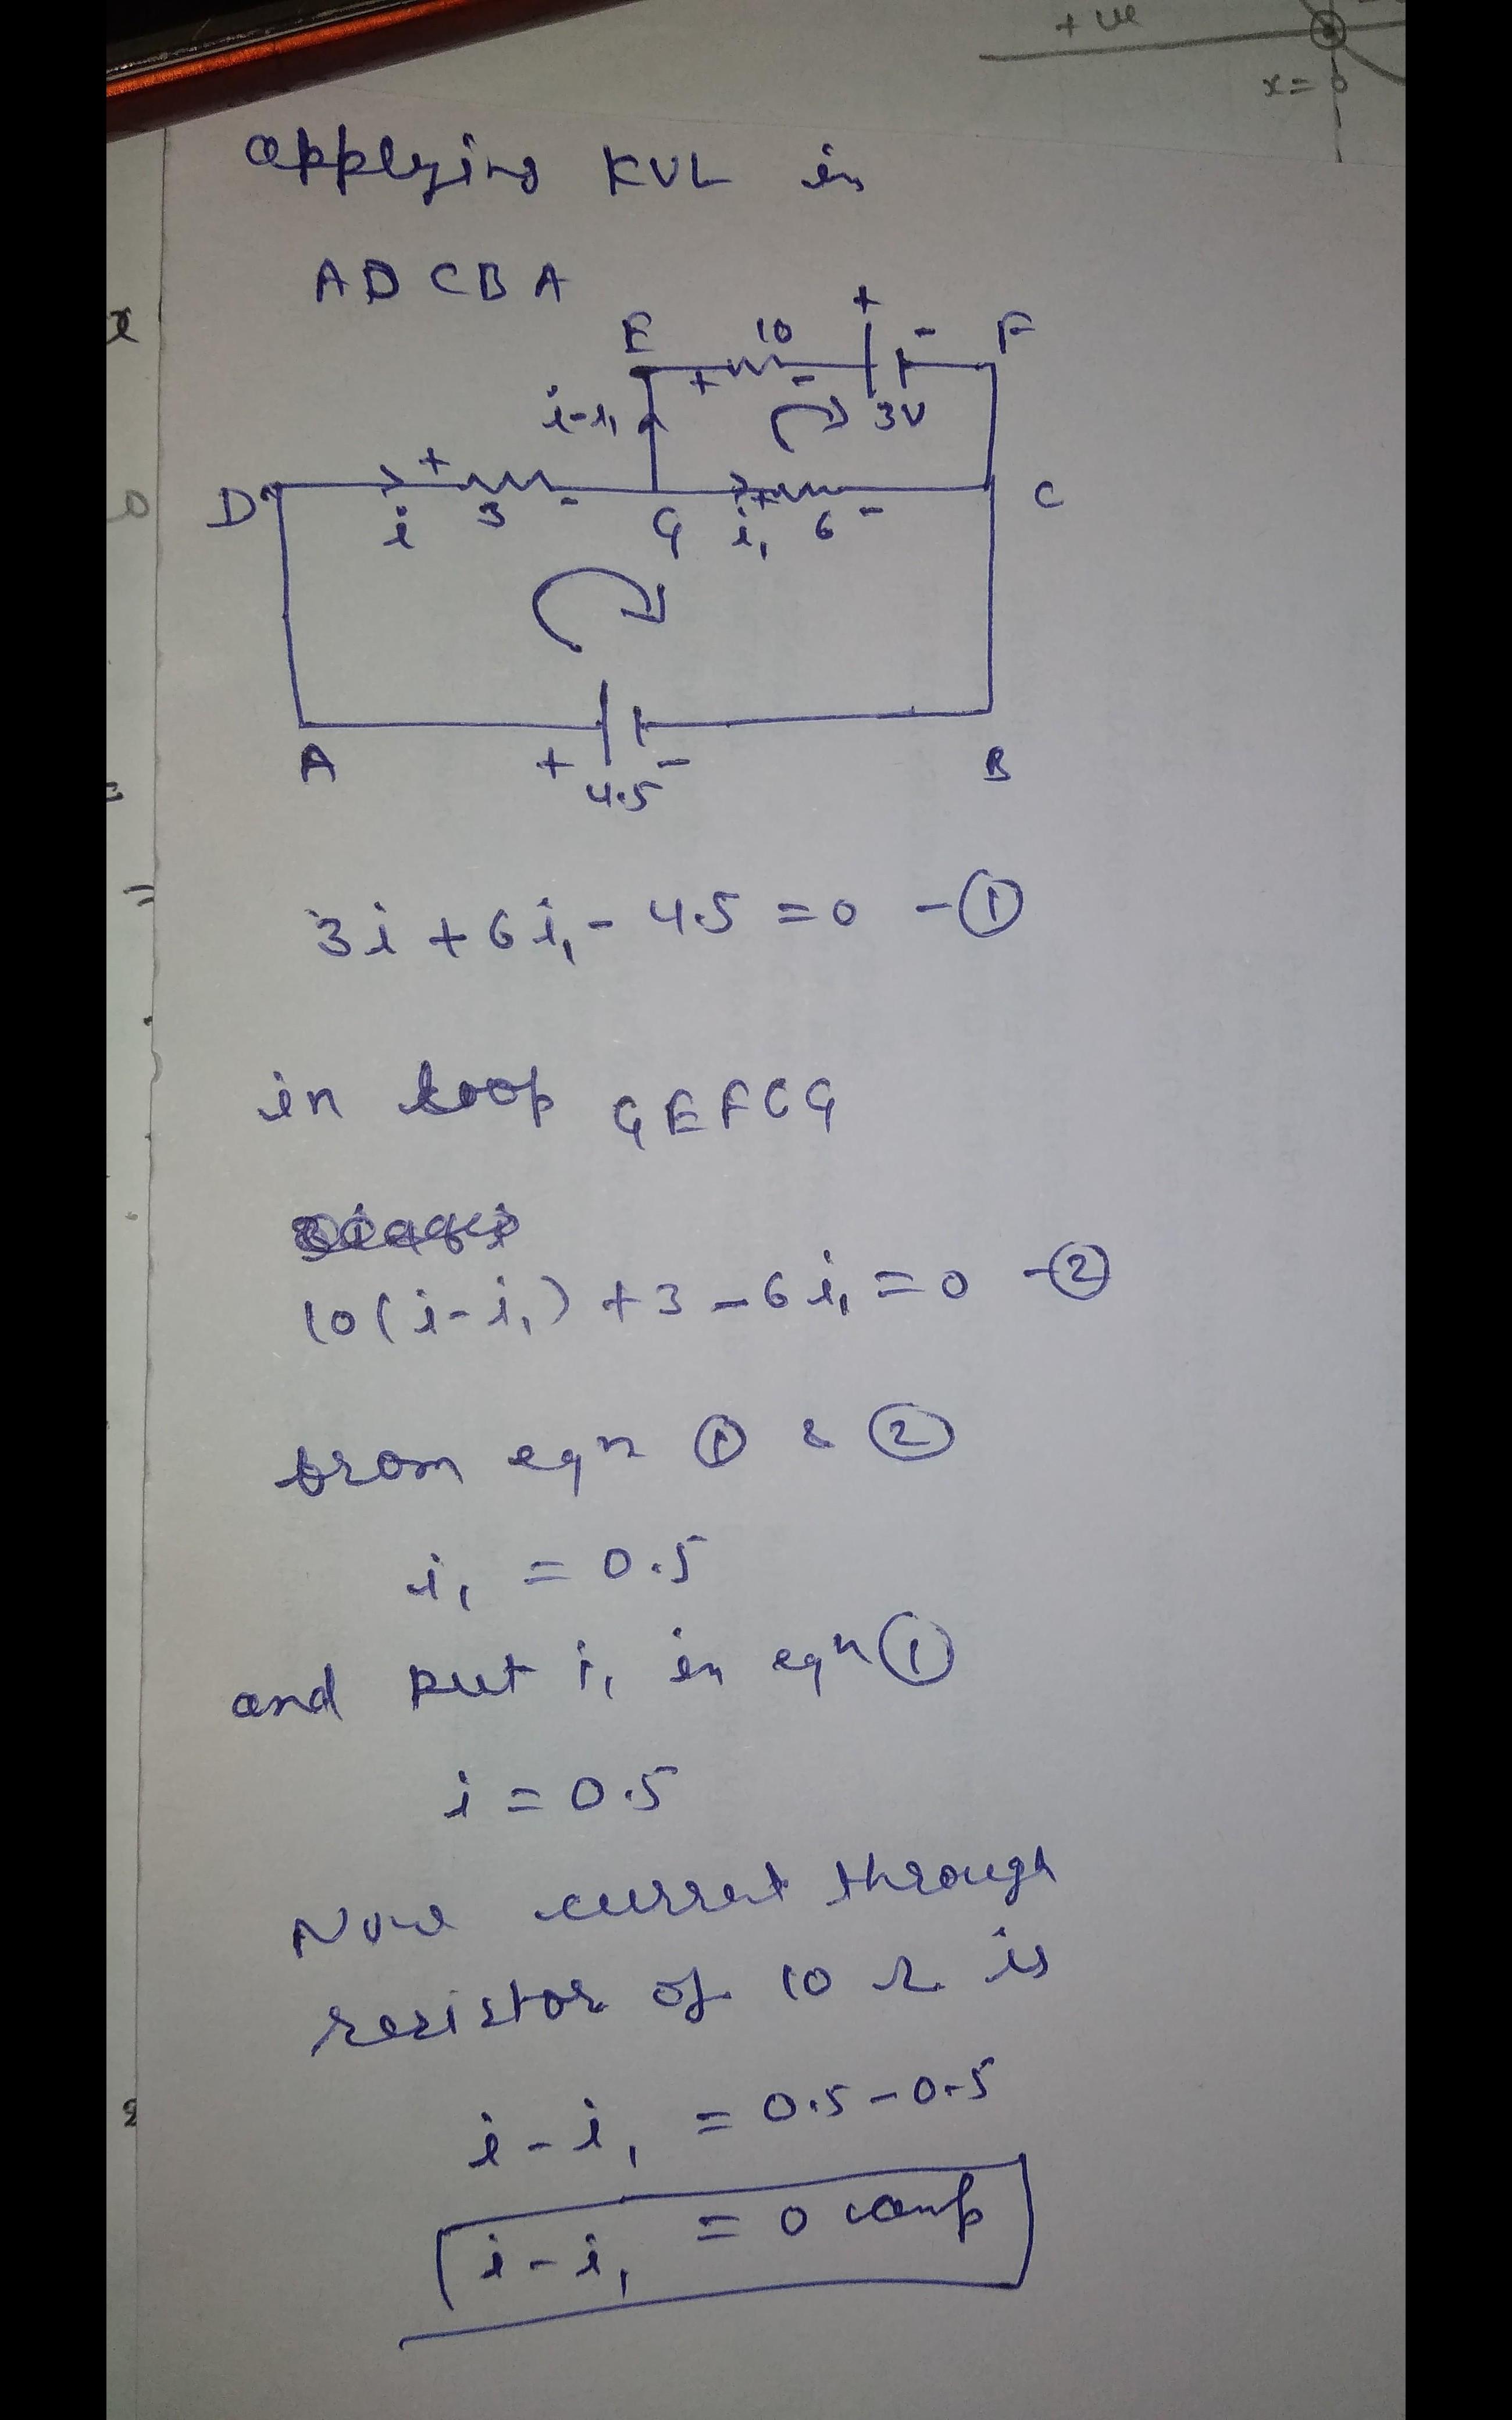 +ve
x=0
applying KVL in
ADCBA
E 10 + - F
+ -
i-i₁ 3V
D + - G + - C
i 3 i₁ 6
A + - B
4.5
3i + 6i₁ - 4.5 = 0 -①
in loop GEFCG
10(i-i₁) + 3 - 6i₁ = 0 -②
from eqn ① & ②
i₁ = 0.5
and put i₁ in eqn ①
i = 0.5
Now current through
resistor of 10 Ω is
i - i₁ = 0.5 - 0.5
i - i₁ = 0 amp